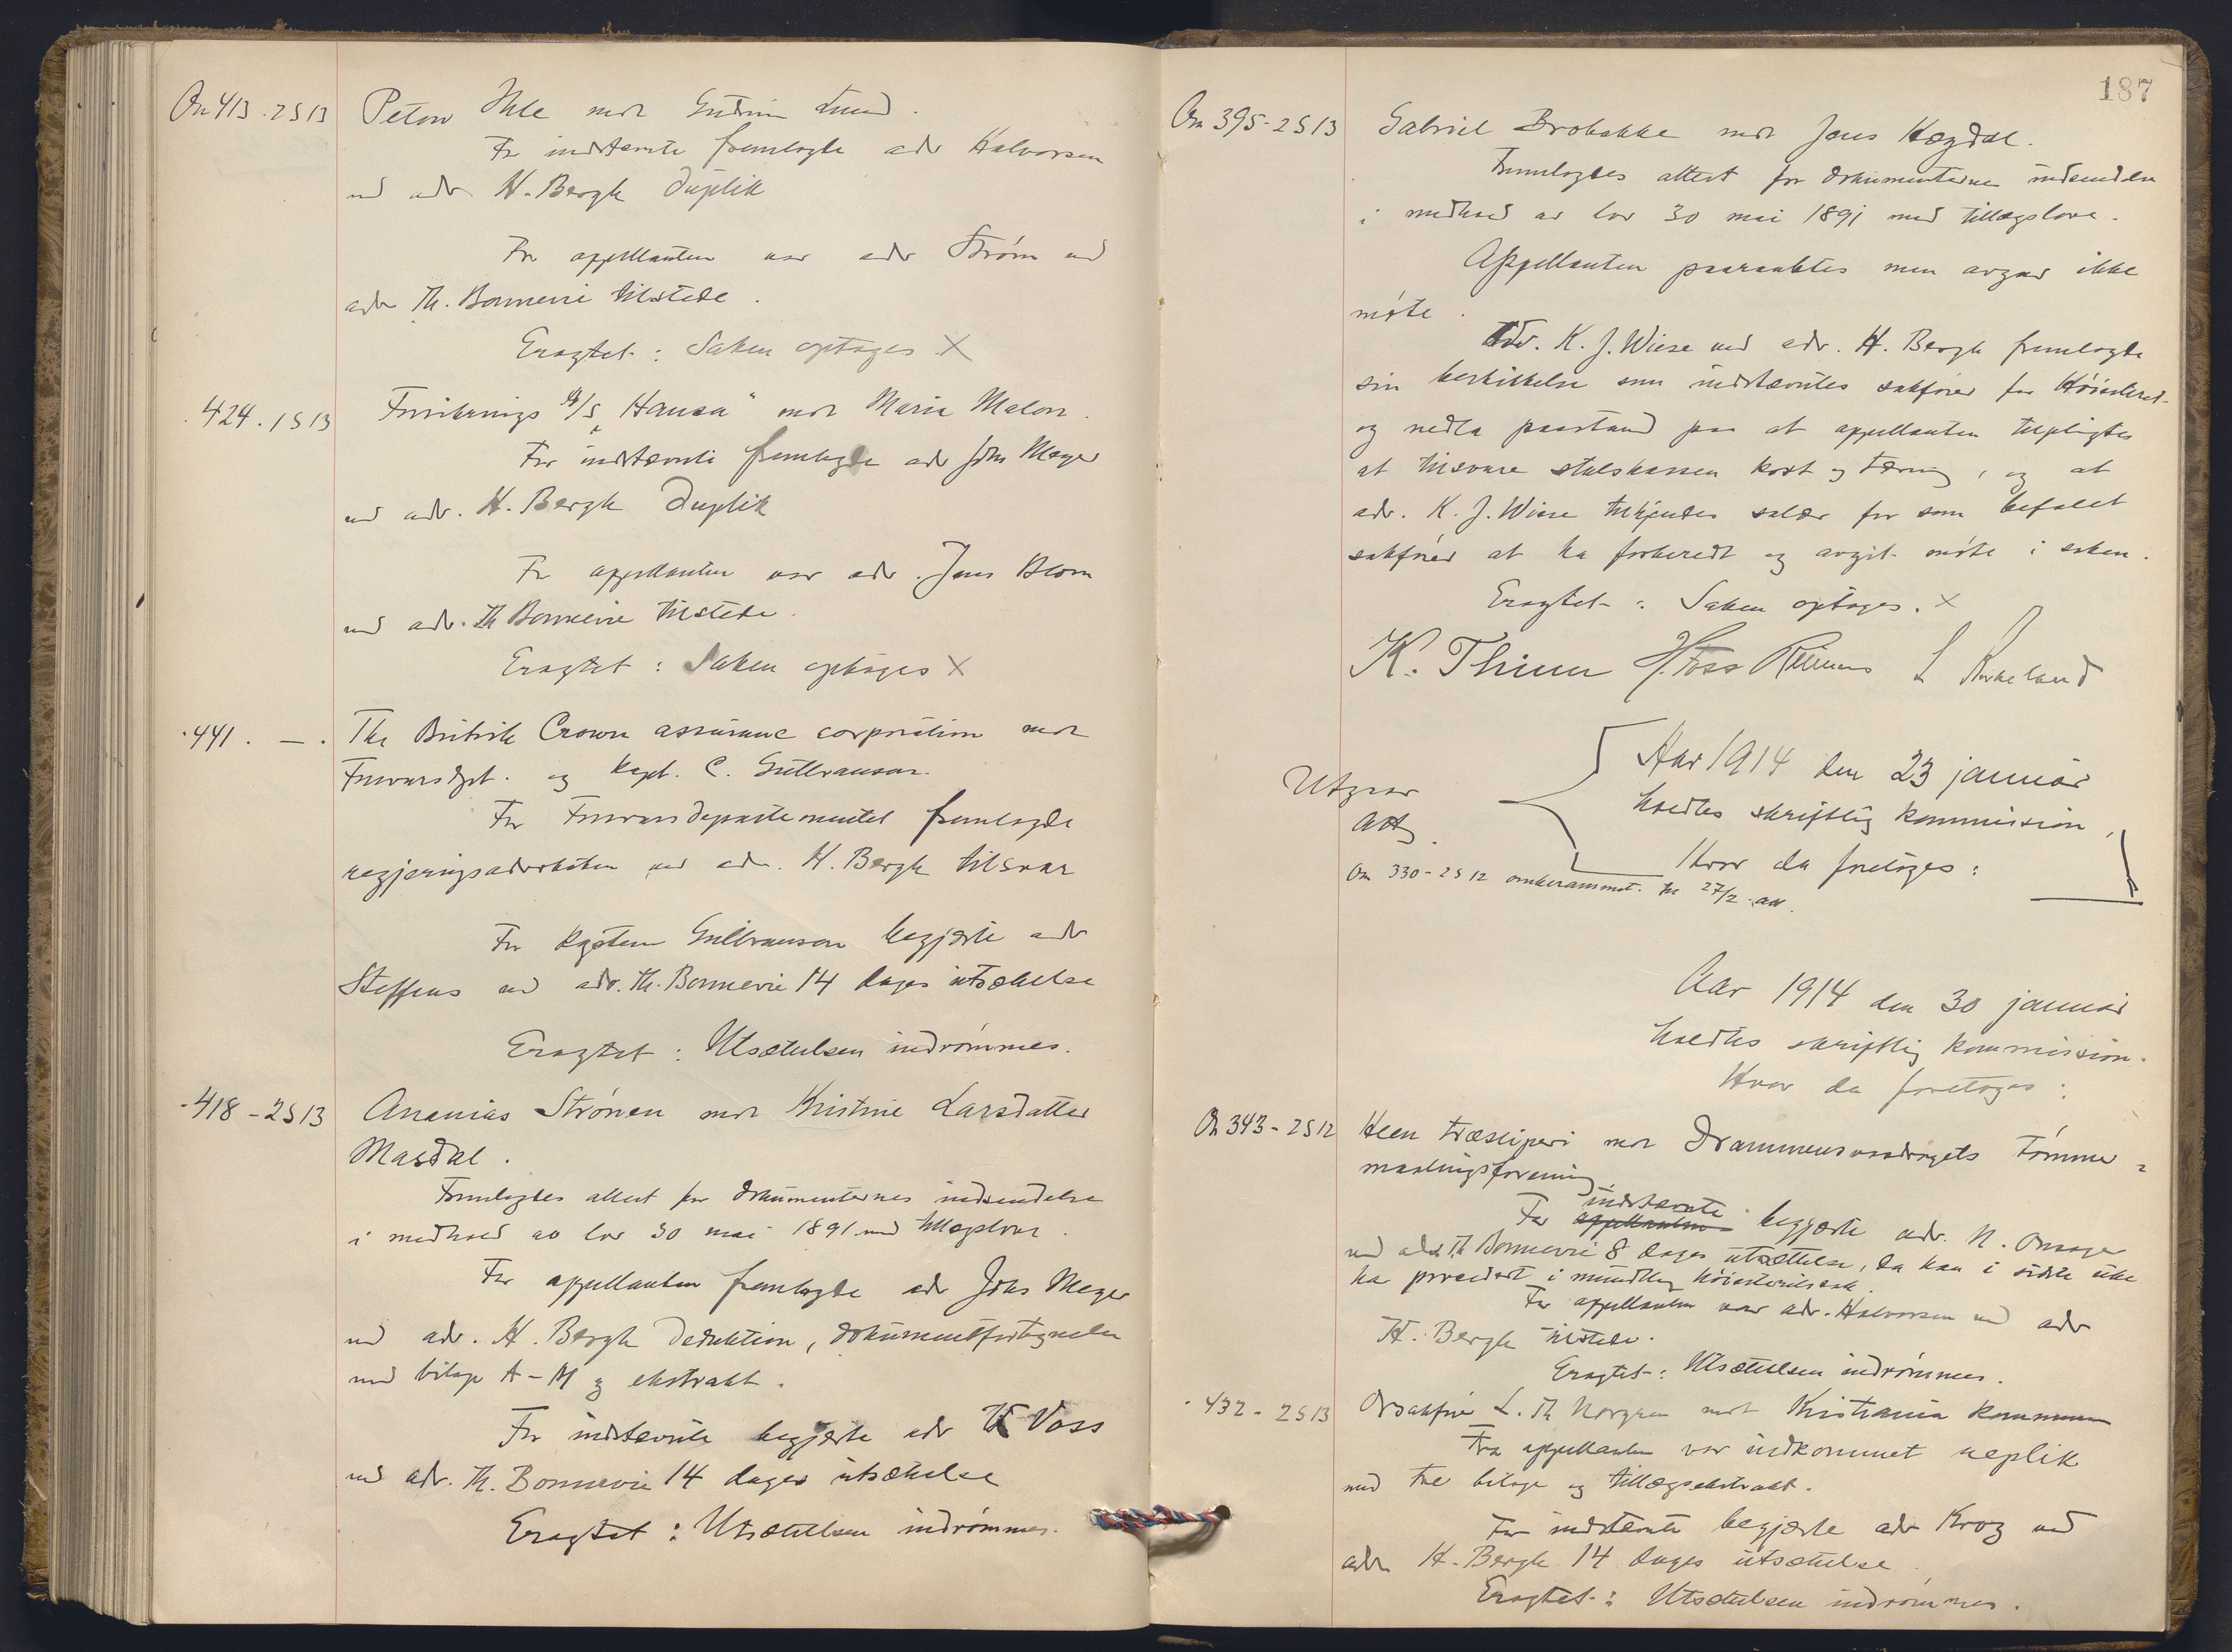 On 413. 2 S 13 Petow Ihle mot Gudrun Lund.
For indstevnte fremlagde adv Halvorsen
ved adv H. Bergh Duplik
For appellanten var adv Strøm ved
adv Th. Bonnevie tilstede.
Eragtet: Saken optages X
424. 1 S 13 Forsikrings A/S "Hansa" mot Maria Malon.
For indstævnte fremlagde adv Johs Meyer
ved adv. H. Bergh Duplik
For appellanten var adv. Jens Blom
ved adv. Th Bonnevie tilstede.
Eragtet: Saken optages X
441. — . The British Crown assurance corporation mot
Forsvarsdpt. og kapt. C. Gulbranson.
For Forsvarsdepartementet fremlagde
regjeringsadvokaten ved adv. H. Bergh tilsvar
For kaptein Gulbranson begjærte adv
Steffens ved adv. Th. Bonnevie 14 dages utsættelse
Eragtet: Utsættelsen indrømmes.
418 - 2 S 13 Ananias Strønen mot Kristine Larsdatter
Masdal.
Fremlagdes attest for dokumenternes indsendelse
i medhold av lov 30 mai 1891 med tillægslove.
For appellanten fremlagde adv Johs Meyer
ved adv. H. Bergh Deduktion, dokumentfortegnelse
med bilag A-M og ekstrakt.
For indstævnte begjærte adv Voss
ved adv. Th. Bonnevie 14 dages utsættelse
Eragtet: Utsættelsen indrømmes.
187
On 395 - 2 S 13 Gabriel Brobakke mot Jens Hegdal.
Fremlagdes attest for dokumenternes indsendelse
i medhold av lov 30 mai 1891 med tillægslove.
Appellanten paaraabtes men avgav ikke
møte.
Adv. K. J. Wiese ved adv. H. Bergh fremlagde
sin beskikkelse som indstævntes sakfører for Høiesteret
og nedla paastand paa at appellanten tilpligtes
at tilsvare statskassen kost og tæring, og at
adv. K. J. Wiese tilkjendes salær for som befalet
sakfører at ha forberedt og avgit møte i saken.
Eragtet: Saken optages. X
K. Thinn H. Foss Reimers
Aar 1914 den 23 januar
holdtes skriftlig kommission,
Hvor da foretoges:
Utgaar
On 330 - 2 S 12 omberammet til 27/2
Aar 1914 den 30 januar
holdtes skriftlig kommission.
Hvor da foretoges:
On 343 - 2 S 12 Heen træsliperi mot Drammensvasdragets Tømmer=
maalingsforening.
indstævnte
For appellanten begjærte adv. N. Onsager
ved adv Th Bonnevie 8 dages utsættelse, da han i sidste uke
har procedert i mundtlig høiesteretssak.
For appellanten var adv. Halvorsen ved adv
H. Bergh tilstede.
Eragtet: Utsættelsen indrømmes.
432 - 2 S 13 Orsakfører L. Th Norgren mot Kristiania kommune
Fra appellanten var indkommet replik
med tre bilage og tillægsekstrakt.
For indstævnte begjærte adv Krog ved
adv H. Bergh 14 dages utsættelse.
Eragtet: Utsættelsen indrømmes.